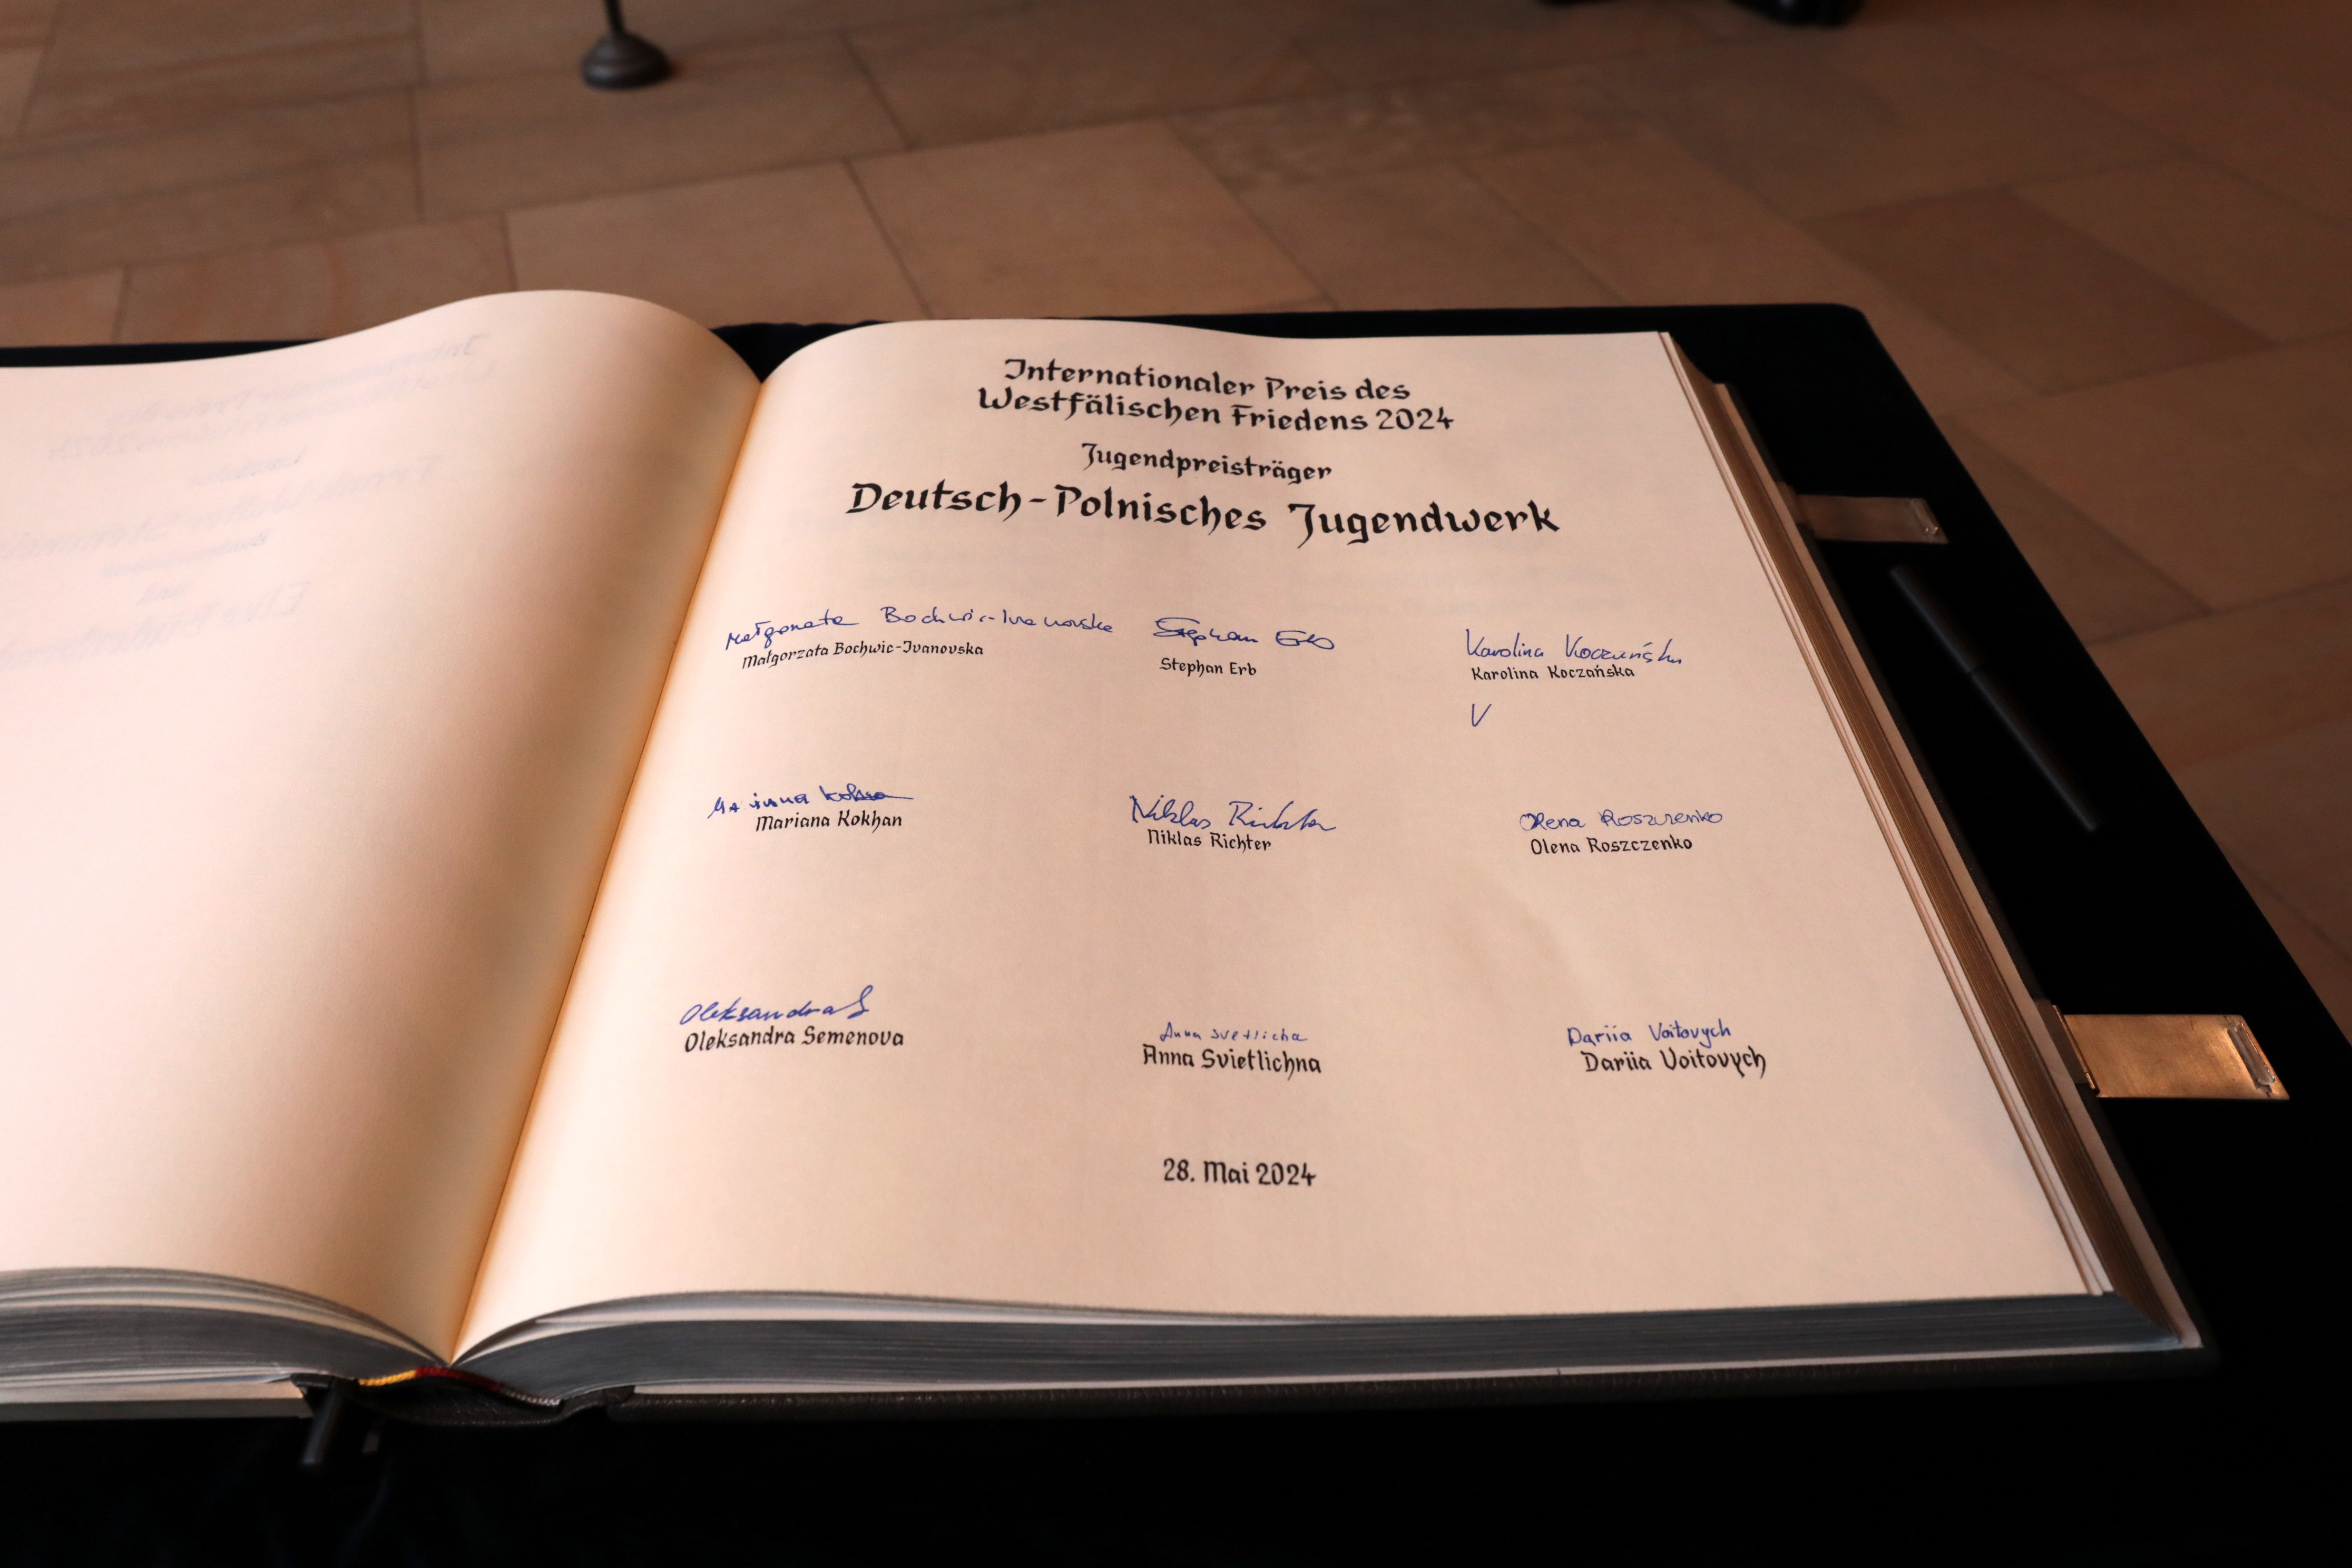 Internationaler Preis des
Westfälischen Friedens 2024
Jugendpreisträger
Deutsch-Polnisches Jugendwerk
Małgorzata Bochwic-Ivanovska Stephan Erb Karolina Koczańska
Małgorzata Bochwic-Ivanovska Stephan Erb Karolina Koczańska
V
Mariana Kokhan Niklas Richter Olena Roszczenko
Mariana Kokhan Niklas Richter Olena Roszczenko
Oleksandra S
Oleksandra Semenova
Anna Svietlichna Dariia Voitovych
Anna Svietlichna Dariia Voitovych
28. Mai 2024